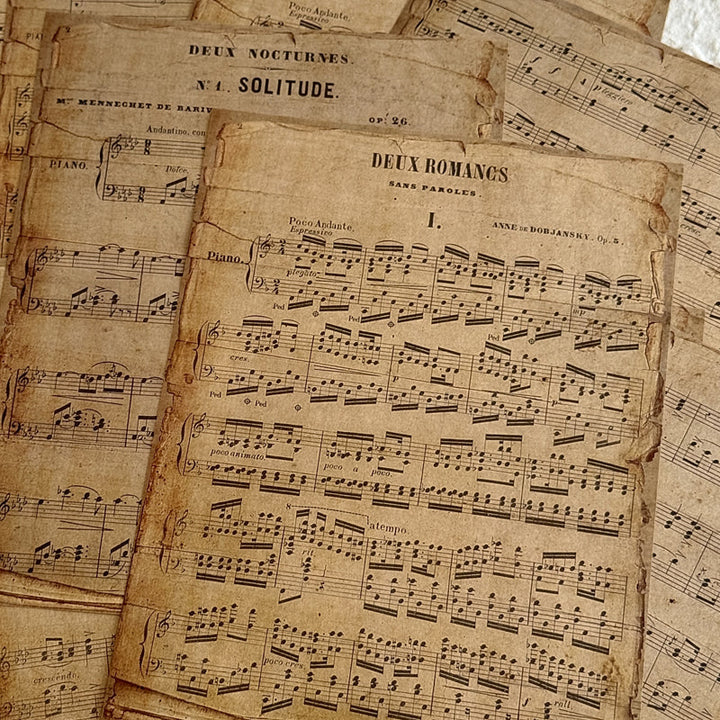 Poco Andante.
Espressivo
2
DEUX NOCTURNES.
Nº 1. SOLITUDE.
Mme MENNECHET DE BARIV
OP: 26.
Andantino, con
PIANO.
Dolce.
crescendo.
2
DEUX ROMANCS
SANS PAROLES.
I.
Poco Andante.
Espressivo
ANNE DE DOBJANSKY. Op. 5
Piano.
2/4
Ped
Ped
Ped
mp
cres.
p
Ped
Ped
poco animato.
poco a poco.
8
a tempo.
rit.
poco cres.
f
rall.
f f
p leggiero
cres.